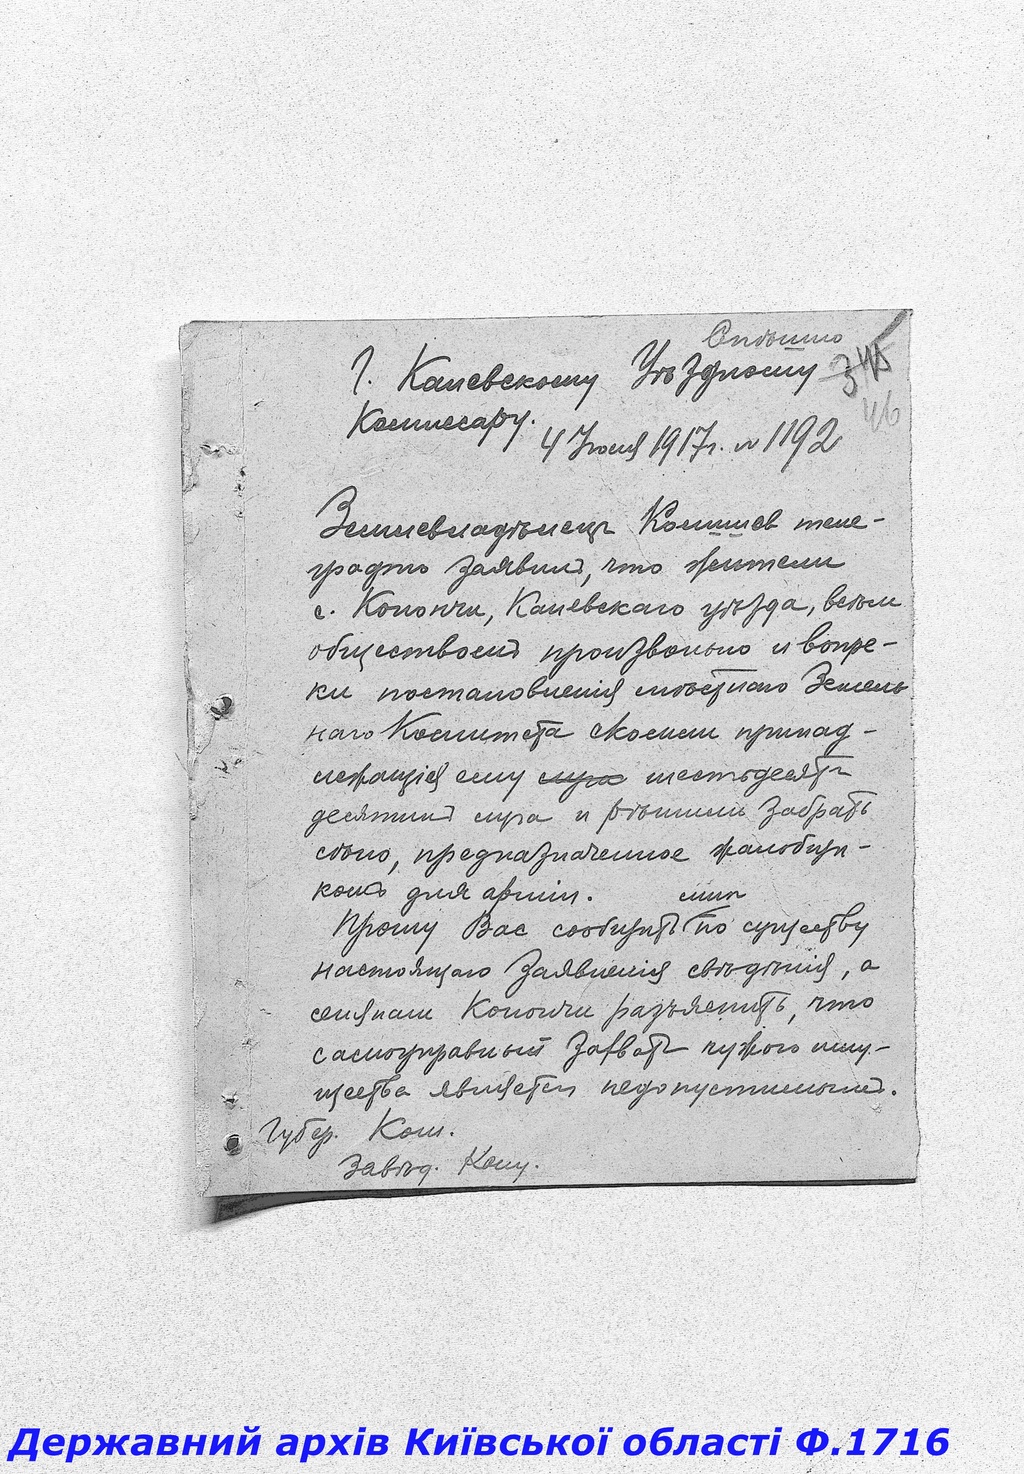 Спѣшно
Г. Каневскому Уѣздному 345
Комиссару. 46
4 Июля 1917 г. № 1192
Землевладѣлецъ теле-
графно заявилъ, что жители
с. Конончи, Каневскаго уѣзда, всѣмъ
обществомъ произвольно и вопре-
ки постановленія мѣстнаго Земель
наго Комитета скосили принад-
лежащія ему луга шестьдесятъ
десятинъ луга и рѣшили забрать
сѣно, предназначенное
для арміи.
Прошу Вас сообщить мнѣ по существу
настоящаго заявленія свѣдѣнія, а
селянам Конончи разъяснить, что
самоуправный захватъ чужого иму-
щества является недопустимымъ.
Губер. Ком.
Завѣд. Канц.
Державний архів Київської області Ф.1716